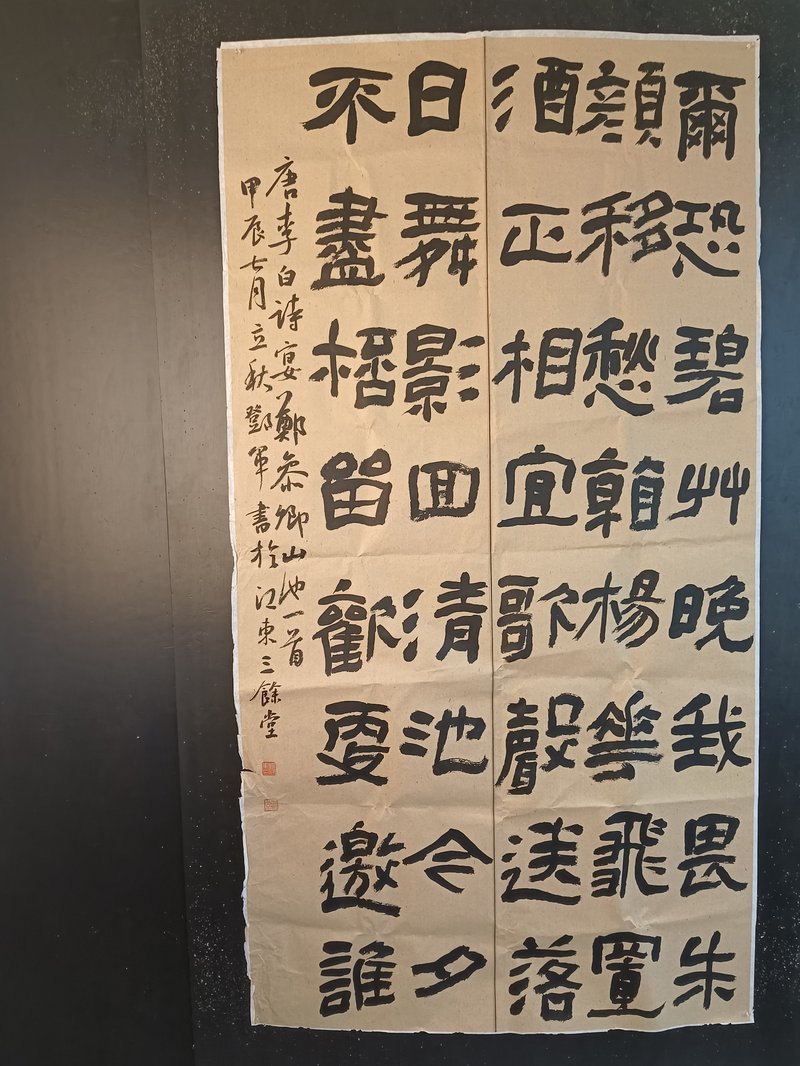 爾恐碧艸晚我畏朱
顏移愁看楊華飛置
酒正相宜歌聲送落
日舞影回清池今夕
不盡桮留歡更邀誰
唐李白詩宴鄭參卿山池一首
甲辰七月立秋鄧軍書於江東三餘堂